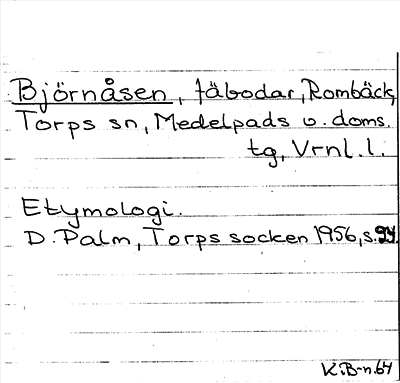 Björnåsen, fäbodar, Rombäck,
Torps sn, Medelpads v. doms.
tg, Vrnl. l.
Etymologi.
D. Palm, Torps socken 1956, s.
K.B-n.64